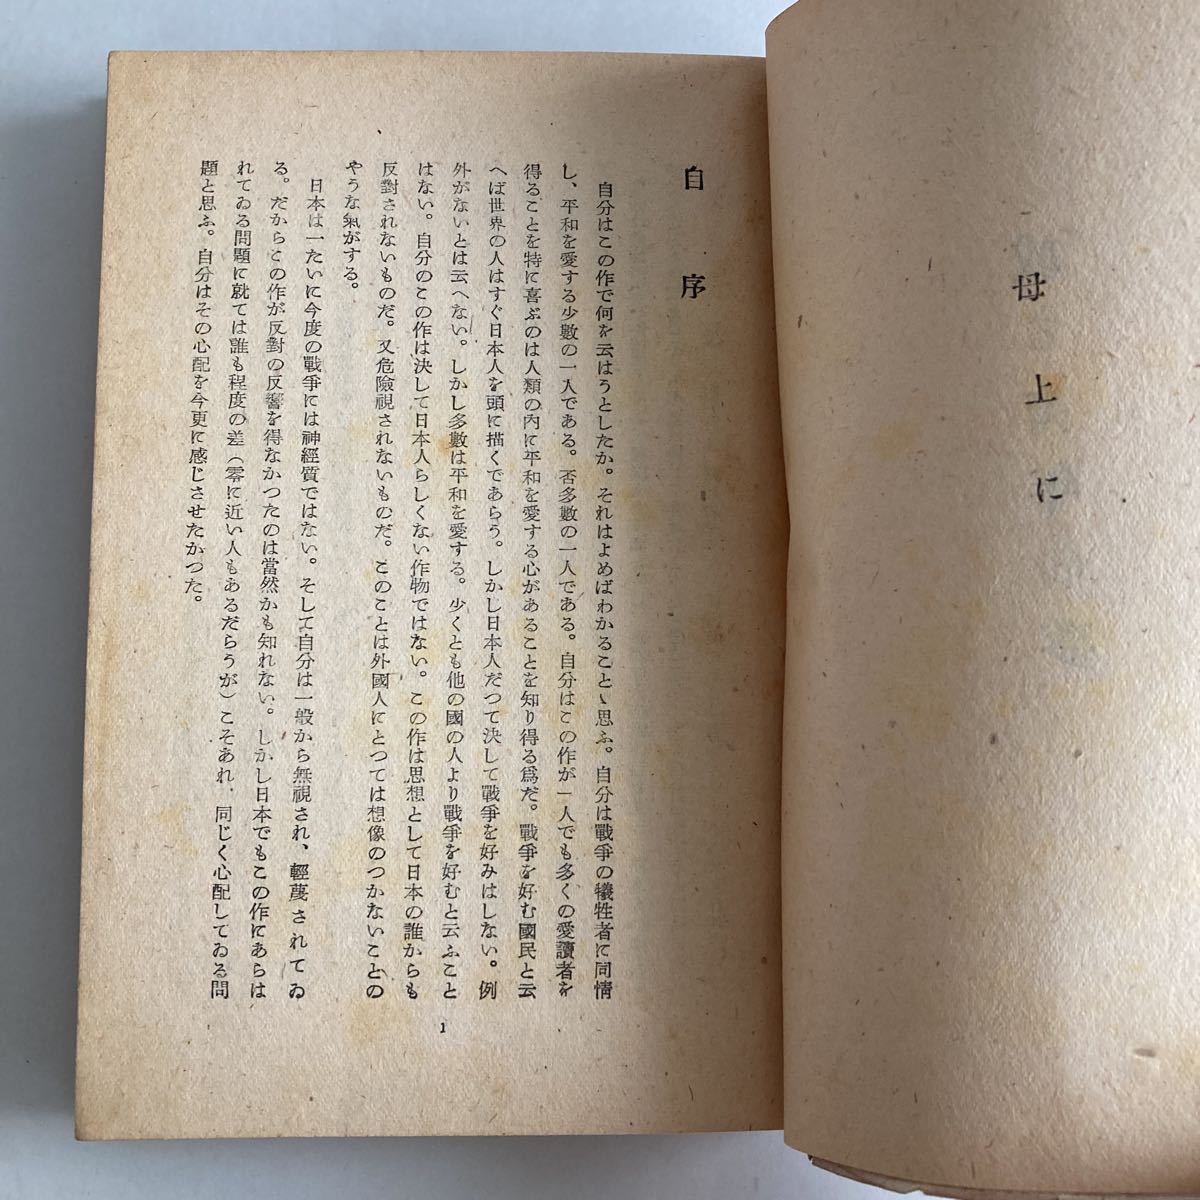 母上に
自序
自分はこの作で何を云はうとしたか。それはよめばわかることゝ思ふ。自分は戰爭の犧牲者に同情
し、平和を愛する少數の一人である。否多數の一人である。自分はこの作が一人でも多くの愛讀者を
得ることを特に喜ぶのは人類の內に平和を愛する心があることを知り得る爲だ。戰爭を好む國民と云
へば世界の人はすぐ日本人を頭に描くであらう。しかし日本人だつて決して戰爭を好みはしない。例
外がないとは云へない。しかし多數は平和を愛する。少くとも他の國の人より戰爭を好むと云ふこと
はない。自分のこの作は決して日本人らしくない作物ではない。この作は思想として日本の誰からも
反對されないものだ。又危險視されないものだ。このことは外國人にとつては想像のつかないことの
やうな氣がする。
日本は一たいに今度の戰爭には神經質ではない。そして自分は一般から無視され、輕蔑されてゐ
る。だからこの作が反對の反響を得なかつたのは當然かも知れない。しかし日本でもこの作にあらは
れてゐる問題に就ては誰も程度の差（零に近い人もあるだらうが）こそあれ、同じく心配してゐる問
題と思ふ。自分はその心配を今更に感じさせたかつた。
1